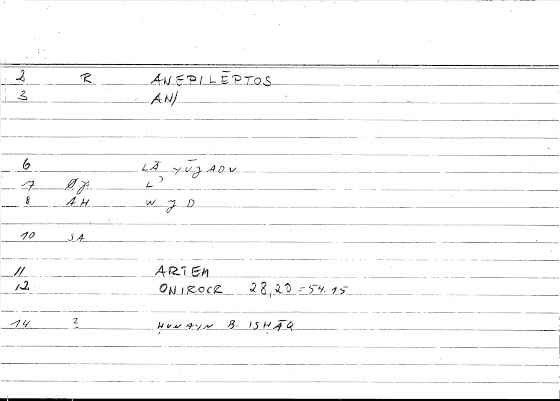 2 R ANEPILĒPTOS
3 AN/
6 LĀ YŪǦADU
7 ØJ L'
8 AH W J D
10 SA
11 ARTEM
12 ONIROCR 28,20 = 54.15
14 ? ḤUNAYN B. ISḤĀQ